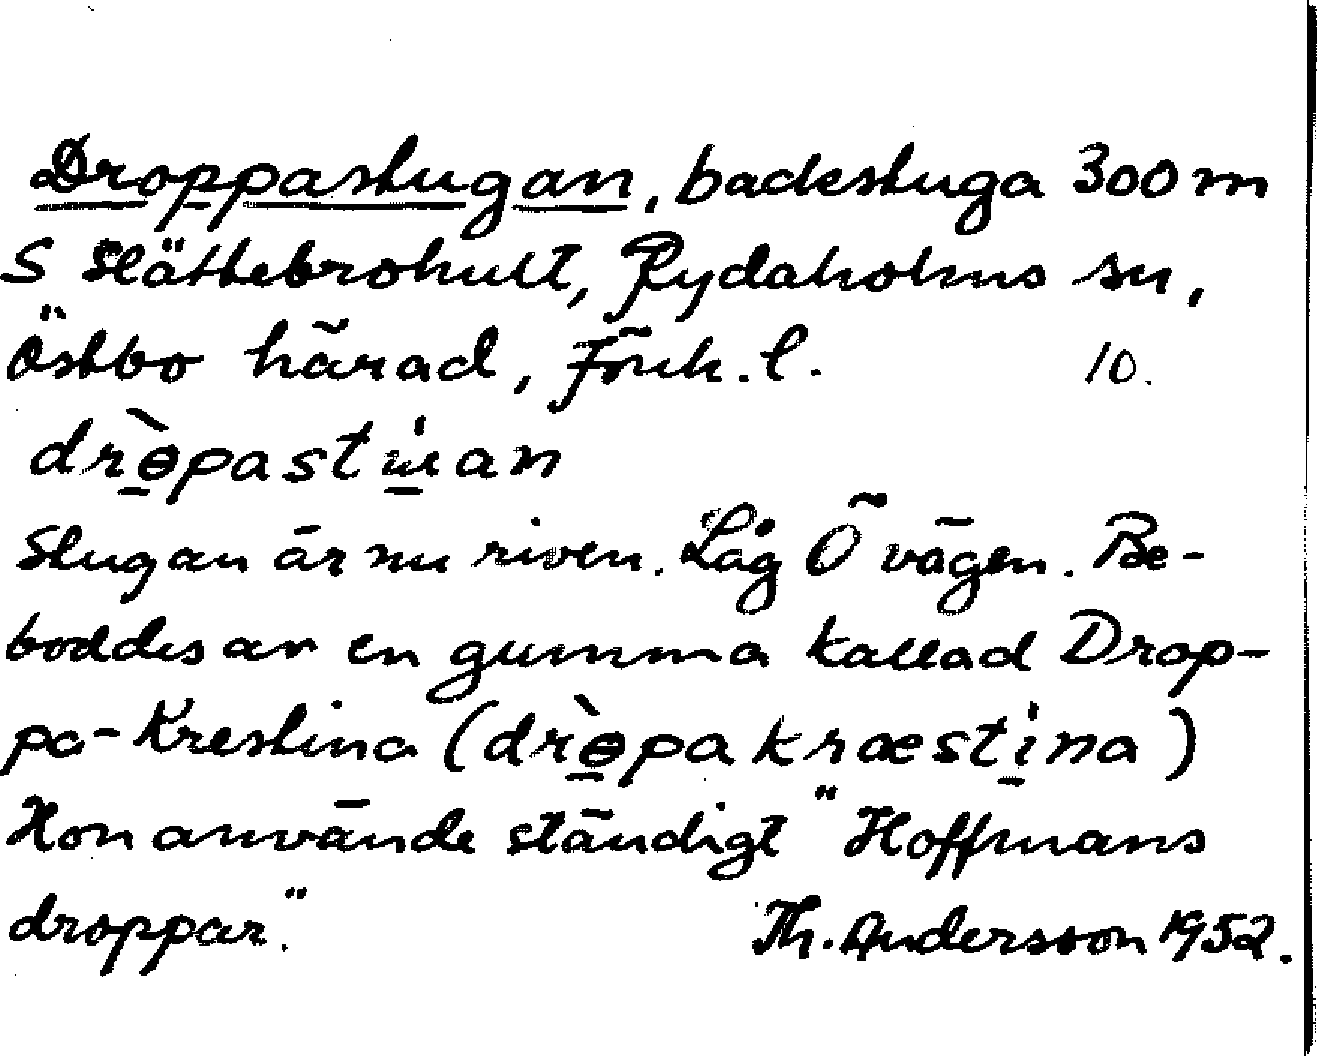 Droppastugan, backstuga 300 m
S Slättebrohult, Rydaholms sn,
Östbo härad, Jönk. l. 10.
drɵ̀pastɯ́an
Stugan är nu riven. Låg Ö vägen. Be-
boddes av en gumma kallad Drop-
pa-Krestina (drɵ̀pakræstina)
Hon använde ständigt "Hoffmans
droppar." Th. Andersson 1952.